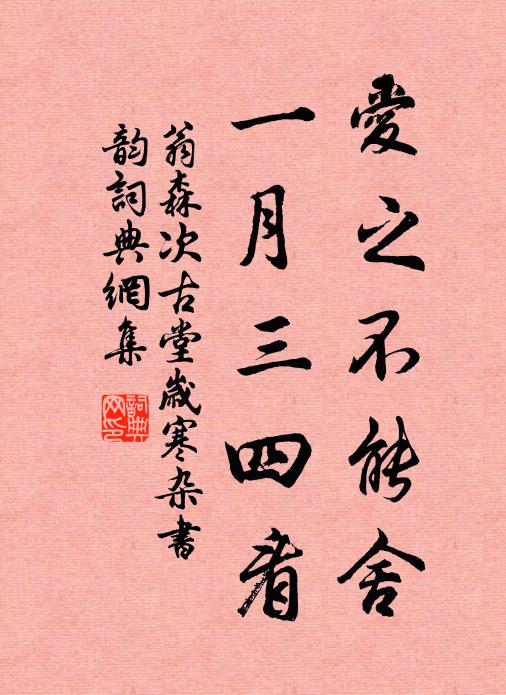 愛之不能舍
一月三四看
翁森次古堂歲寒杂書
韵詞典網集
詞典网印